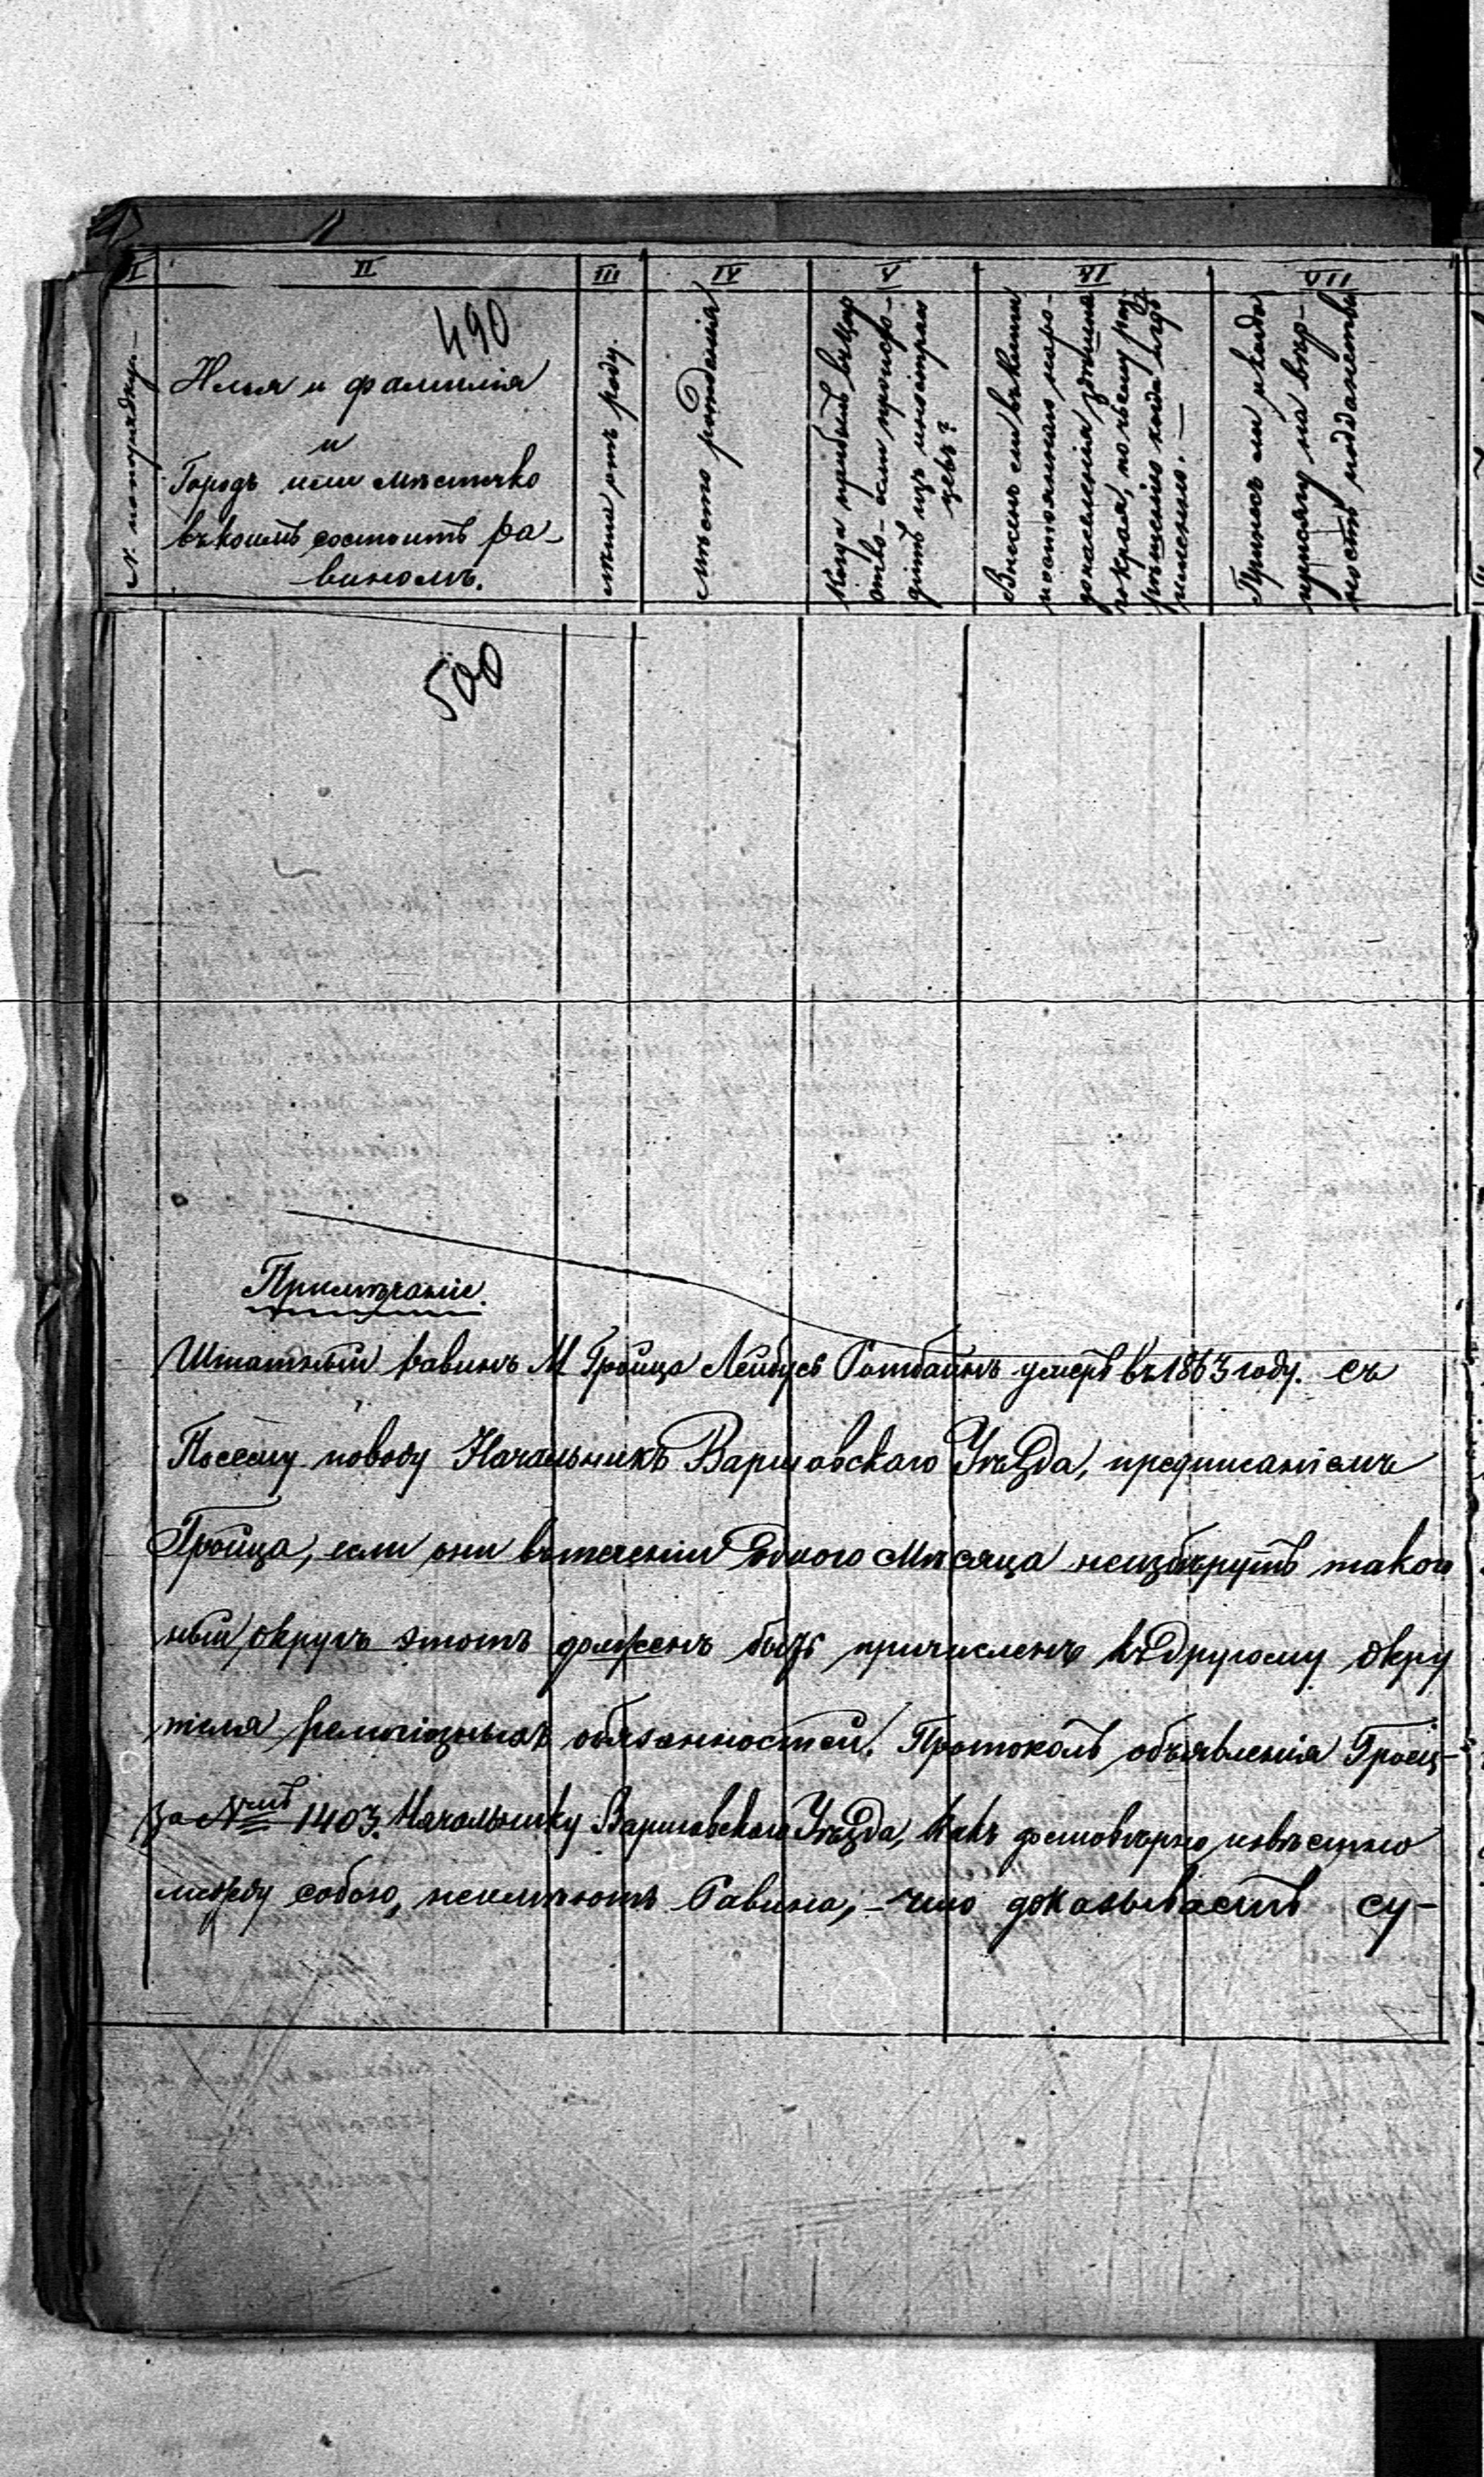 I II III IV V VI VII
№ попорядку.—
490
Имя и фамилія
и
Городъ или мѣстечко
въ коемъ состоитъ ра-
виномъ.
лѣта отъ роду.
мѣсто рожденія
Когда прибылъ въ Цар
ство- если происхо-
дитъ изъ иностран
цевъ?
Внесенъ ли въ книги
постояннаго наро-
донаселенія здѣшня
го края, по чьему раз-
рѣшенію когда и гдѣ
Принесъ ли и когда
присягу на вѣр-
ность подданства
500
Примѣчаніе.
Штатный равинъ М Гройца Лейбусь Ротбайнъ умеръ въ 1863 году. съ
Посему поводу Начальникъ Варшавскаго Уѣзда, предписаніемъ
Гройца, если они втеченіи одного Мѣсяца неизберутъ такого
ный округъ этотъ долженъ быть причисленъ къ другому окру
теля религіозныхъ обязанностей. Протоколъ объявленія Гроец-
за № 1403. Начальнику Варшавскаго Уѣзда, какъ достовѣрно извѣстно
между собою, неимѣютъ Равина,- что доказываетъ су-